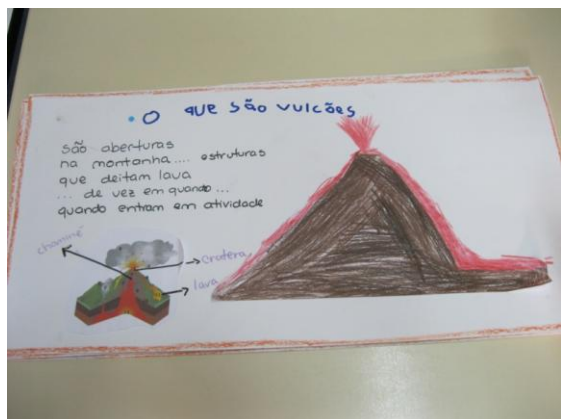 O que são vulcões
são aberturas
na montanha.... estruturas
que deitam lava
... de vez em quando...
quando entram em atividade
chaminé
cratera
lava